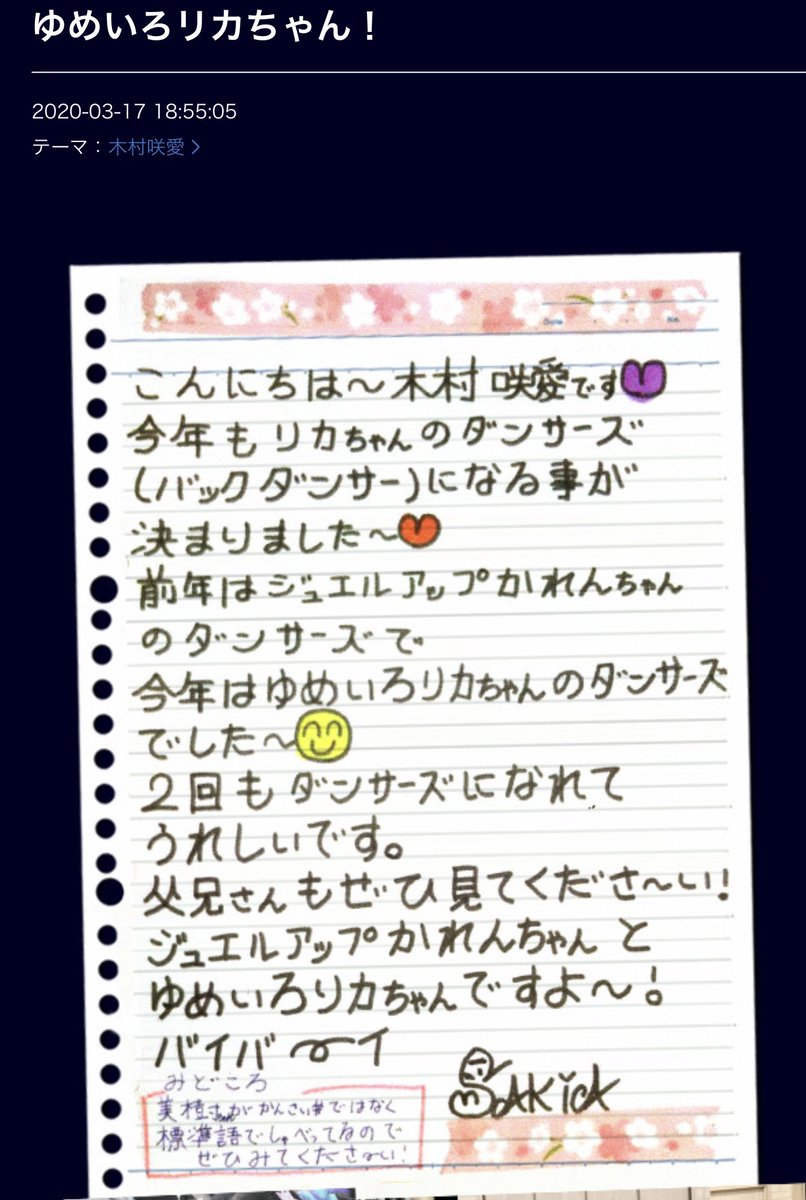 ゆめいろリカちゃん！
2020-03-17 18:55:05
テーマ：木村咲愛 >
こんにちは～木村咲愛です
今年もリカちゃんのダンサーズ
(バックダンサー)になる事が
決まりました～
前年はジュエルアップかれんちゃん
のダンサーズで
今年はゆめいろリカちゃんのダンサーズ
でした～
2回もダンサーズになれて
うれしいです。
父兄さんもぜひ見てくださ～い!
ジュエルアップかれんちゃんと
ゆめいろリカちゃんですよ～!
バイバーイ
みどころ
がかんさい弁ではなく
標準語でしゃべってるので
ぜひみてくださーい!
SAKiA